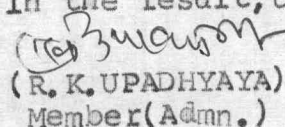 In the result,
(R.K.UPADHYAYA)
Member(Admn.)